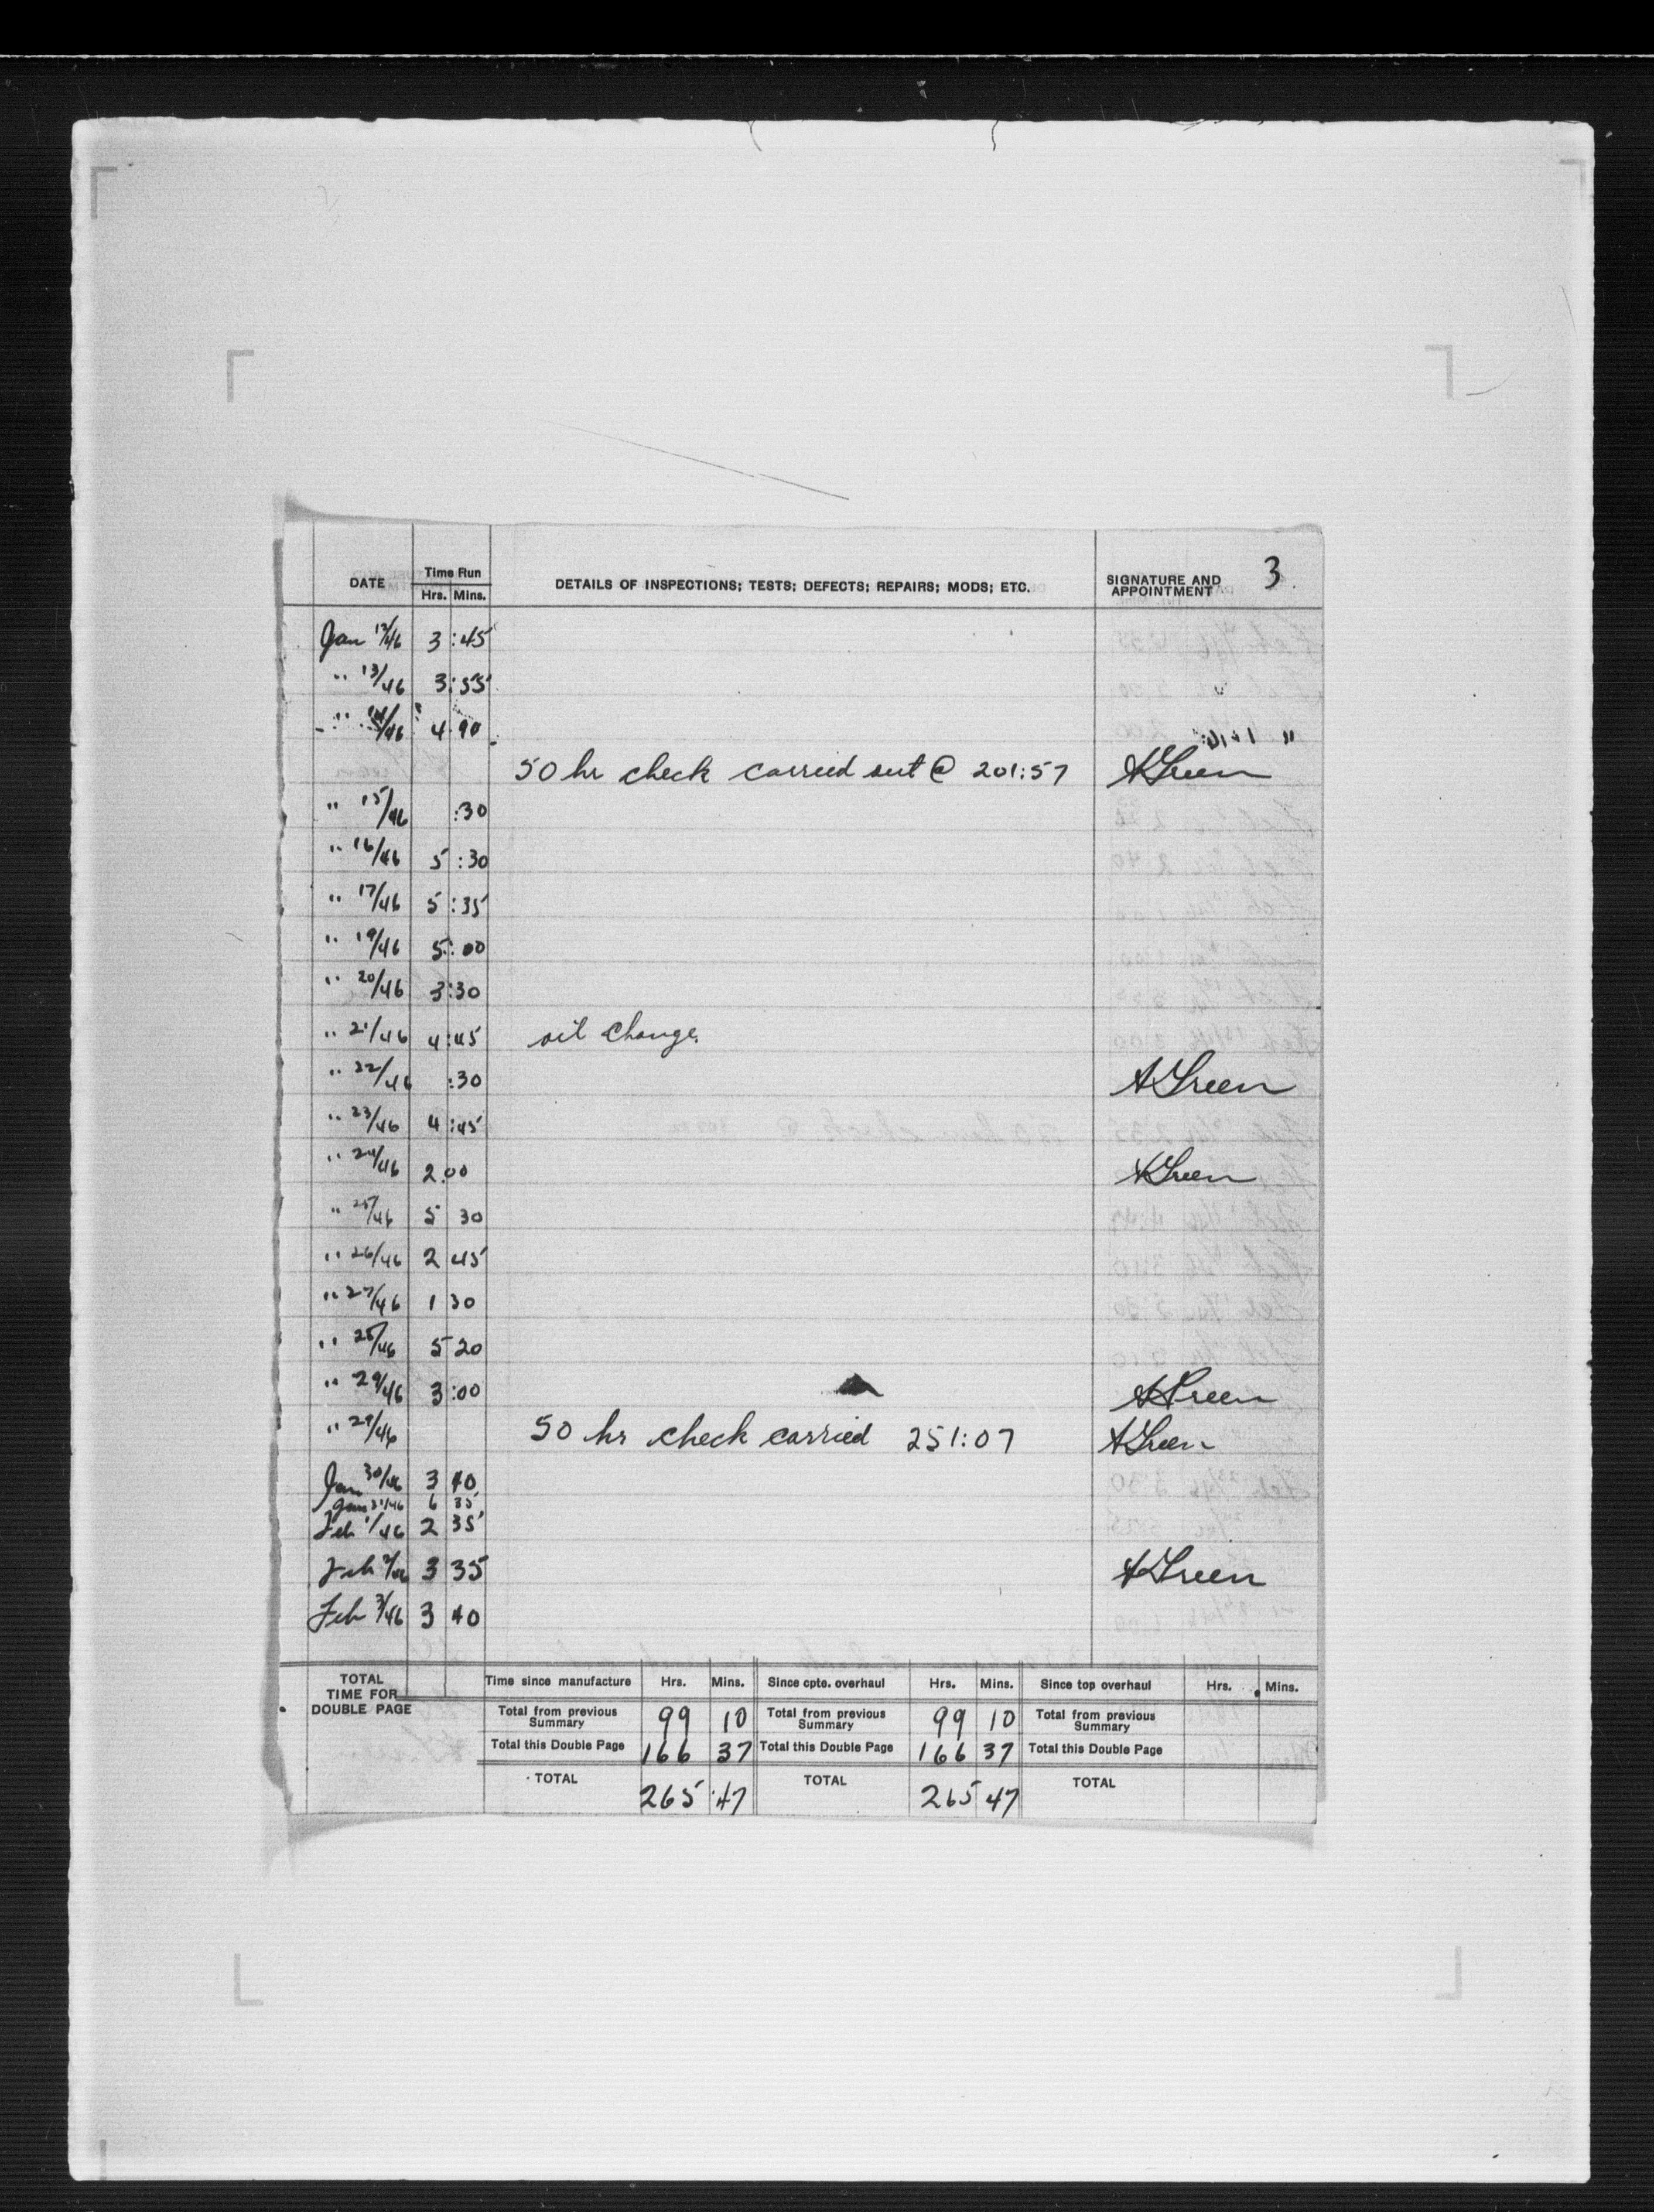 3.
DATE Time Run Hrs. Mins. DETAILS OF INSPECTIONS; TESTS; DEFECTS; REPAIRS; MODS; ETC. SIGNATURE AND APPOINTMENT
Jan 12/46 3:45
" 13/46 3:55
" 14/46 4 "
50 hr check carried out @ 201:57 A Green
" 15/46 :30
" 16/46 5:30
" 17/46 5:35
" 19/46 5:00
" 20/46 3:30
" 21/46 4:45 oil change.
" 22/46 :30 A Green
" 23/46 4:45
" 24/46 2.00 A Green
" 25/46 5 30
" 26/46 2 45
" 27/46 1 30
" 28/46 5 20
" 29/46 3:00 A Green
" 29/46 50 hr check carried 251:07 A Green
Jan 30/46 3 40
Jan 31/46 6 35
Feb 1/46 2 35
Feb 2/46 3 35 A Green
Feb 3/46 3 40
TOTAL TIME FOR DOUBLE PAGE
Time since manufacture Hrs. Mins. Since cpte. overhaul Hrs. Mins. Since top overhaul Hrs. Mins.
Total from previous Summary 99 10 Total from previous Summary 99 10 Total from previous Summary
Total this Double Page 166 37 Total this Double Page 166 37 Total this Double Page
TOTAL 265:47 TOTAL 265 47 TOTAL